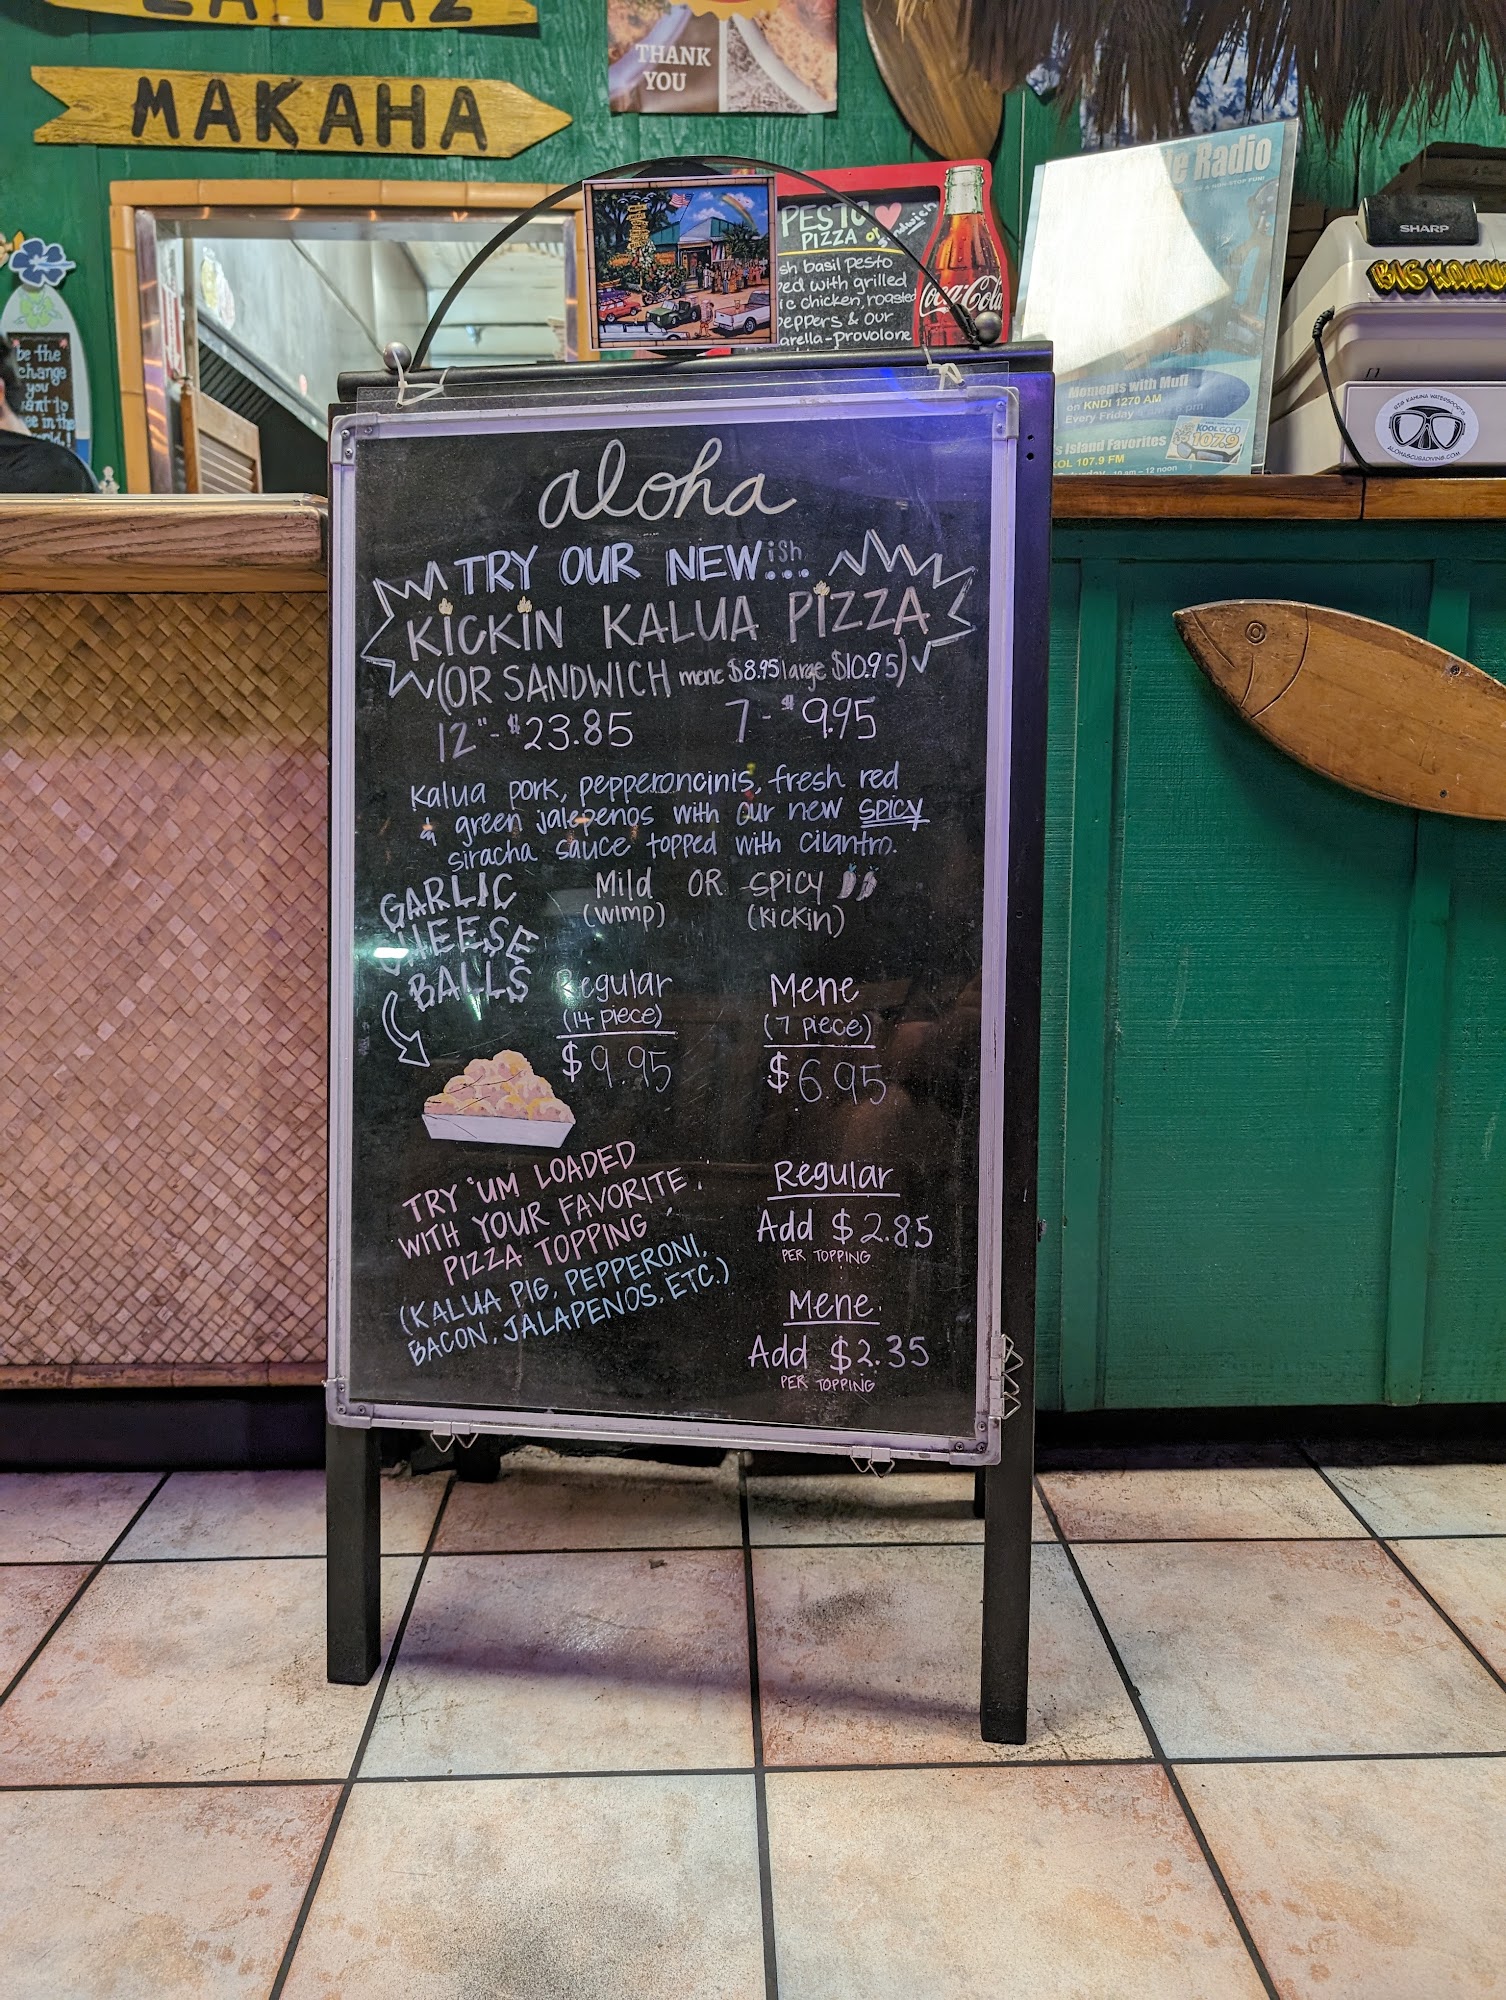 MAKAHA
THANK
YOU
PESTO
PIZZA or Sandwich
basil pesto
with grilled
chicken, roasted
& our
provolone
Coca-Cola
Radio
Moments with Mufi
on KNDI 1270 AM
Every Friday
Island Favorites
107.9 FM
10 am - 12 noon
KOOL GOLD
107.9
SHARP
BIG KAHUNA
BIG KAHUNA WATERSPORTS
ALOHASCUBADIVING.COM
be the
change
you
want to
see in the
world!
aloha
TRY OUR NEWish...
KICKIN KALUA PIZZA
(OR SANDWICH mene $8.95 large $10.95)
12" - $23.85
7 - $9.95
Kalua pork, pepperoncinis, fresh red
& green jalepenos with our new SPICY
siracha sauce topped with cilantro.
Mild OR SPICY
(wimp) (kickin)
GARLIC
CHEESE
BALLS
Regular
(14 piece)
$9.95
Mene
(7 piece)
$6.95
TRY 'UM LOADED
WITH YOUR FAVORITE
PIZZA TOPPING
(KALUA PIG, PEPPERONI,
BACON, JALAPENOS, ETC.)
Regular
Add $2.85
PER TOPPING
Mene
Add $2.35
PER TOPPING